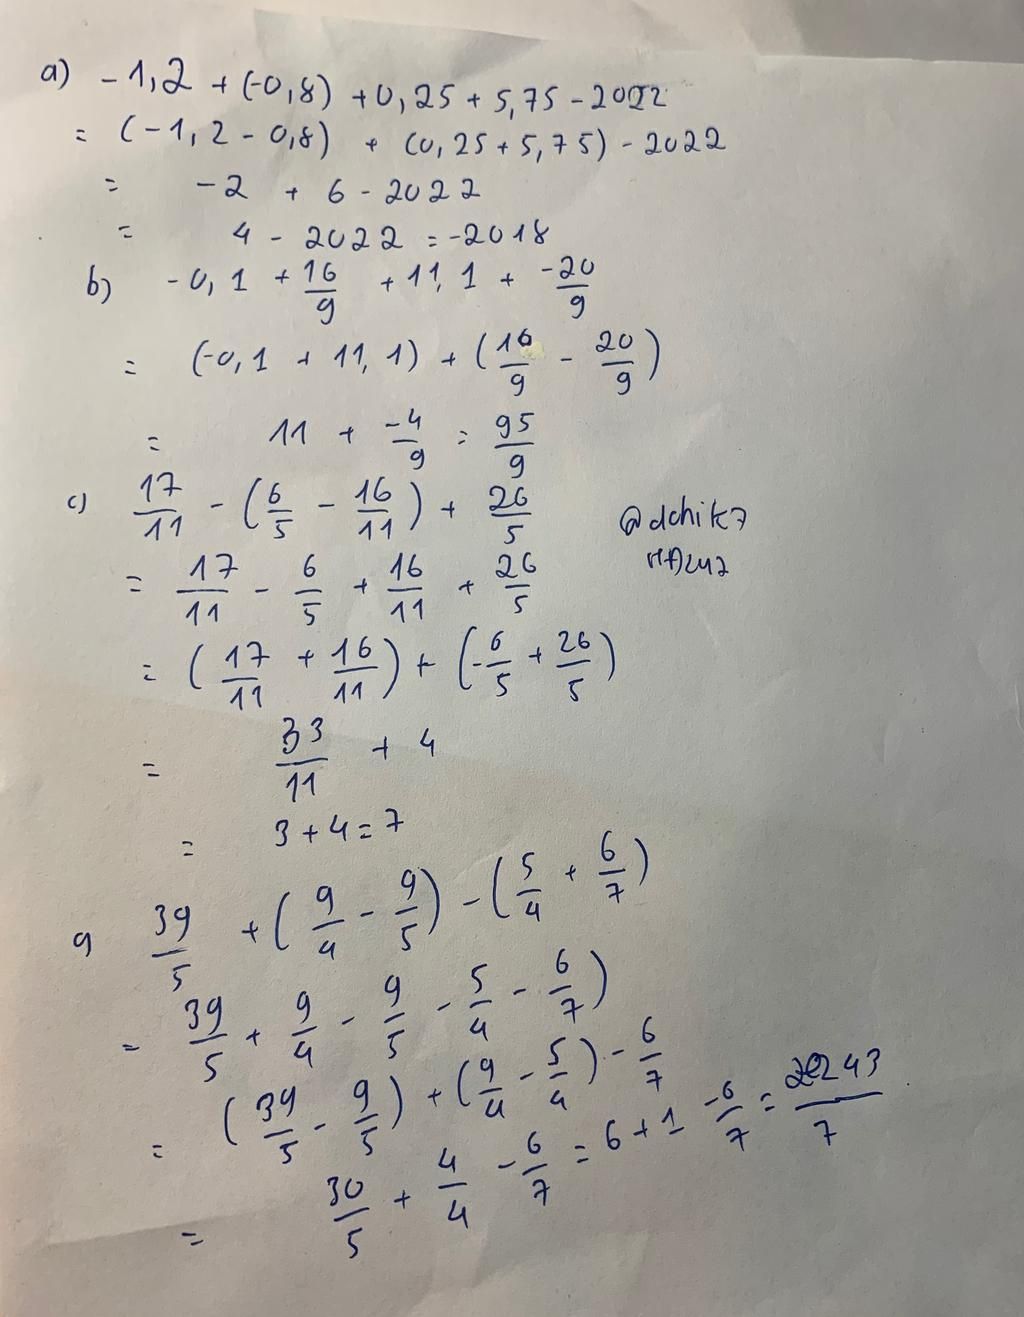 a) -1,2 + (-0,8) + 0,25 + 5,75 - 2022
= (-1,2 - 0,8) + (0,25 + 5,75) - 2022
= -2 + 6 - 2022
= 4 - 2022 = -2018
b) -0,1 + 16/9 + 11,1 + -20/9
= (-0,1 + 11,1) + (16/9 - 20/9)
= 11 + -4/9 = 95/9
c) 17/11 - (6/5 - 16/11) + 26/5
@dchik7
= 17/11 - 6/5 + 16/11 + 26/5
= (17/11 + 16/11) + (-6/5 + 26/5)
= 33/11 + 4
= 3 + 4 = 7
39/5 + (9/4 - 9/5) - (5/4 + 6/7)
= 39/5 + 9/4 - 9/5 - 5/4 - 6/7)
= (39/5 - 9/5) + (9/4 - 5/4) - 6/7
= 30/5 + 4/4 - 6/7 = 6 + 1 - 6/7 = 43/7